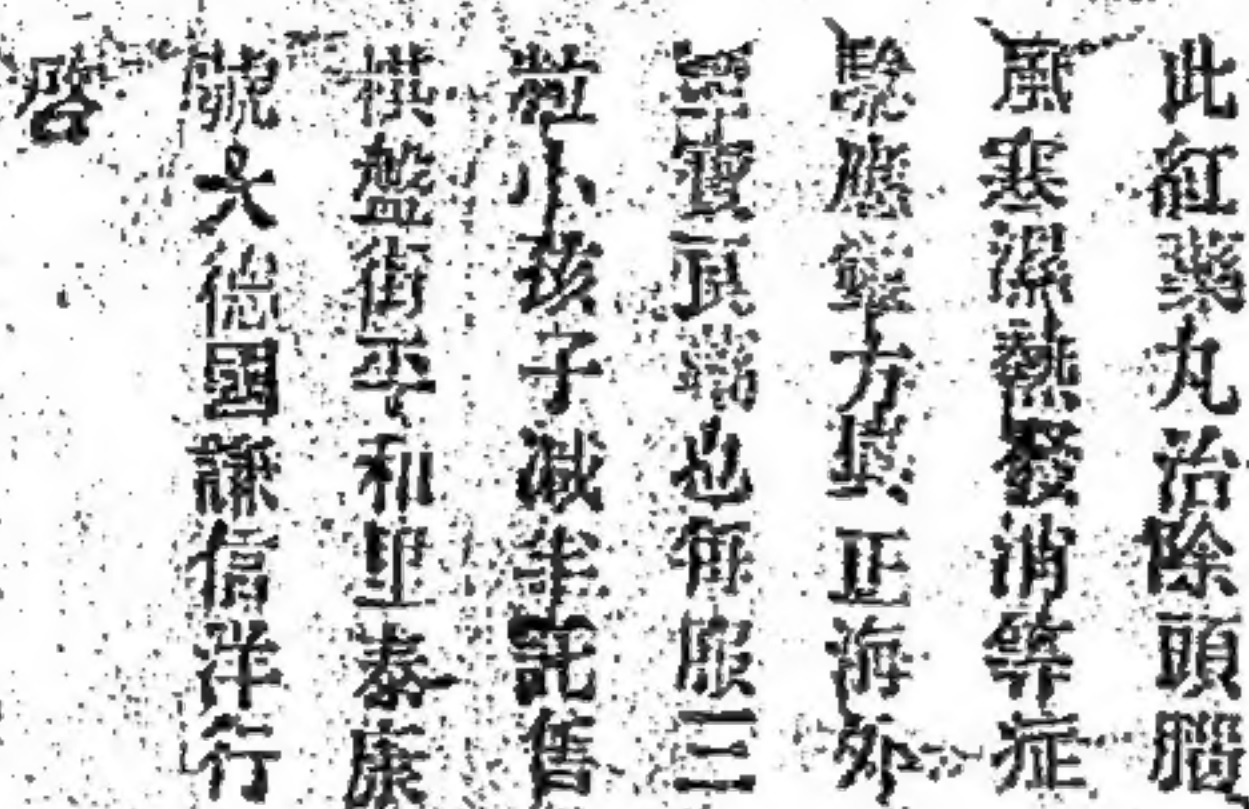 此紅藥丸治除頭腦
風寒濕熱發消等症
騐應籙方真正海外
異寶祯瑞也每服三
粒小孩子減半託售
棋盤街平和里泰康
號大德國謙信洋行
啓